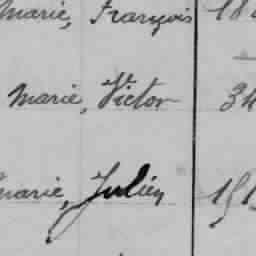 Marie, François
Marie, Victor
Marie, Julien